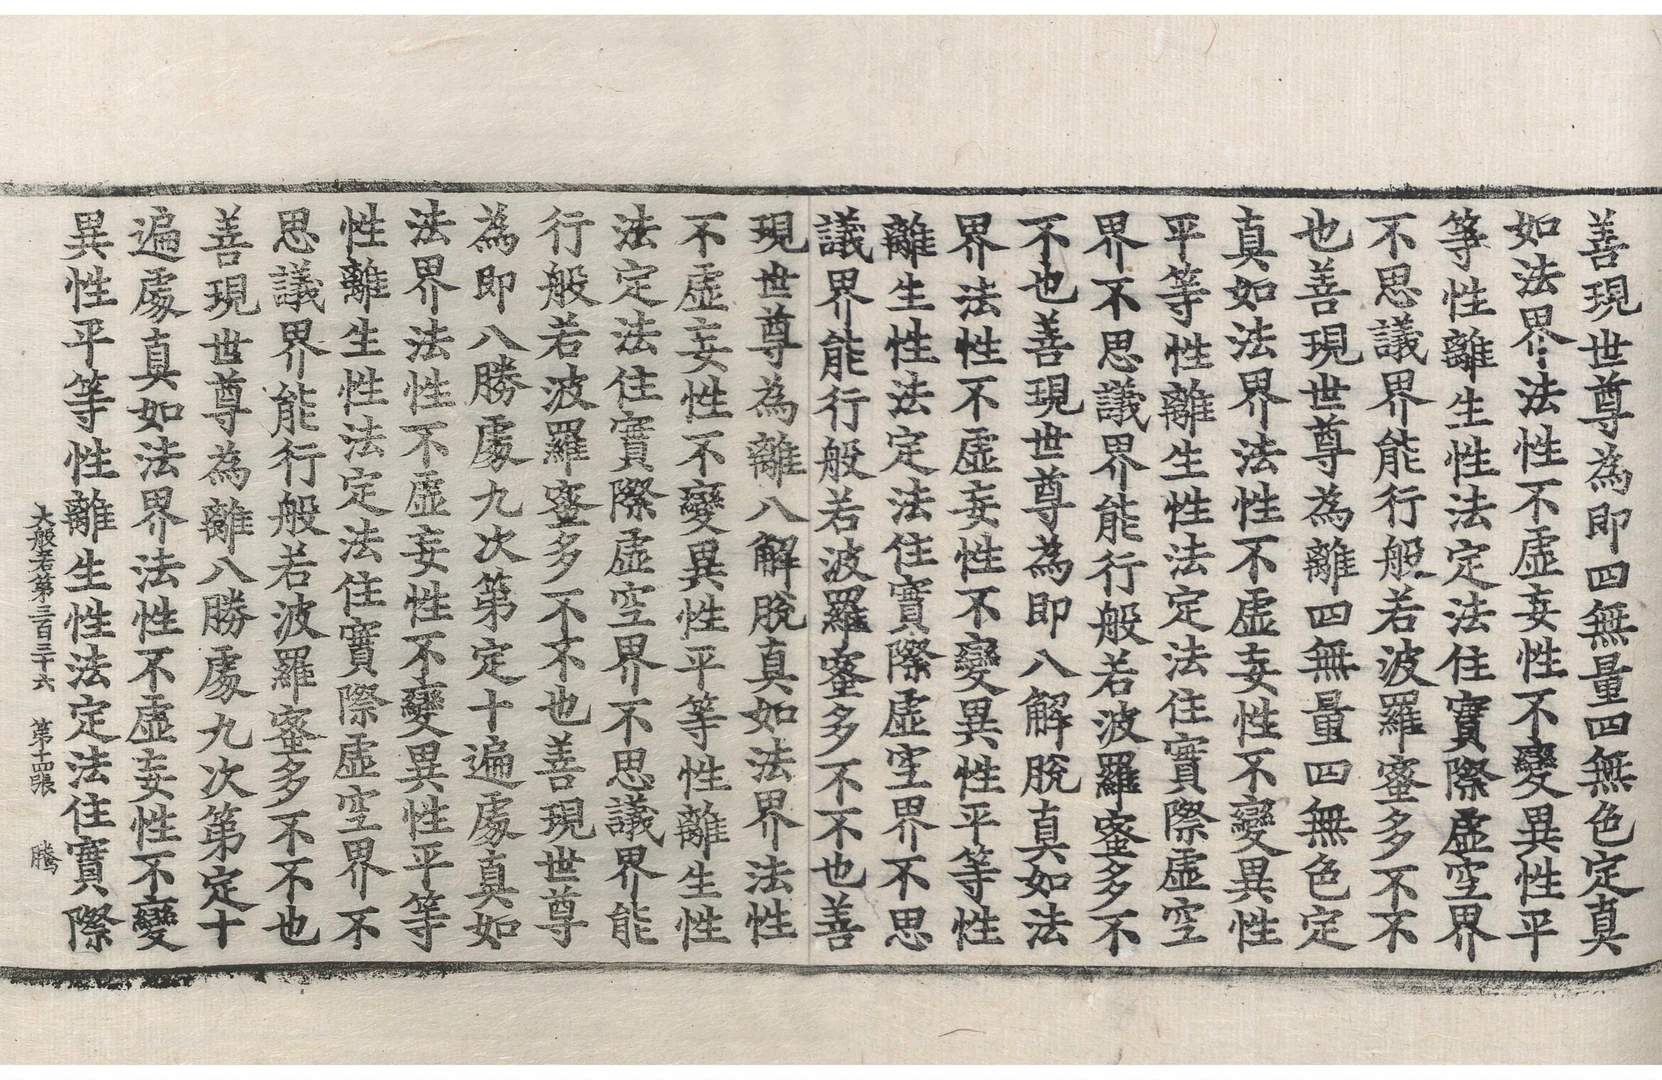 善現世尊為即四無量四無色定真
如法界法性不虛妄性不變異性平
等性離生性法定法住實際虛空界
不思議界能行般若波羅蜜多不不
也善現世尊為離四無量四無色定
真如法界法性不虛妄性不變異性
平等性離生性法定法住實際虛空
界不思議界能行般若波羅蜜多不
不也善現世尊為即八解脫真如法
界法性不虛妄性不變異性平等性
離生性法定法住實際虛空界不思
議界能行般若波羅蜜多不不也善
現世尊為離八解脫真如法界法性
不虛妄性不變異性平等性離生性
法定法住實際虛空界不思議界能
行般若波羅蜜多不不也善現世尊
為即八勝處九次第定十遍處真如
法界法性不虛妄性不變異性平等
性離生性法定法住實際虛空界不
思議界能行般若波羅蜜多不不也
善現世尊為離八勝處九次第定十
遍處真如法界法性不虛妄性不變
異性平等性離生性法定法住實際
大般若第三百三十六 第十四張 騰